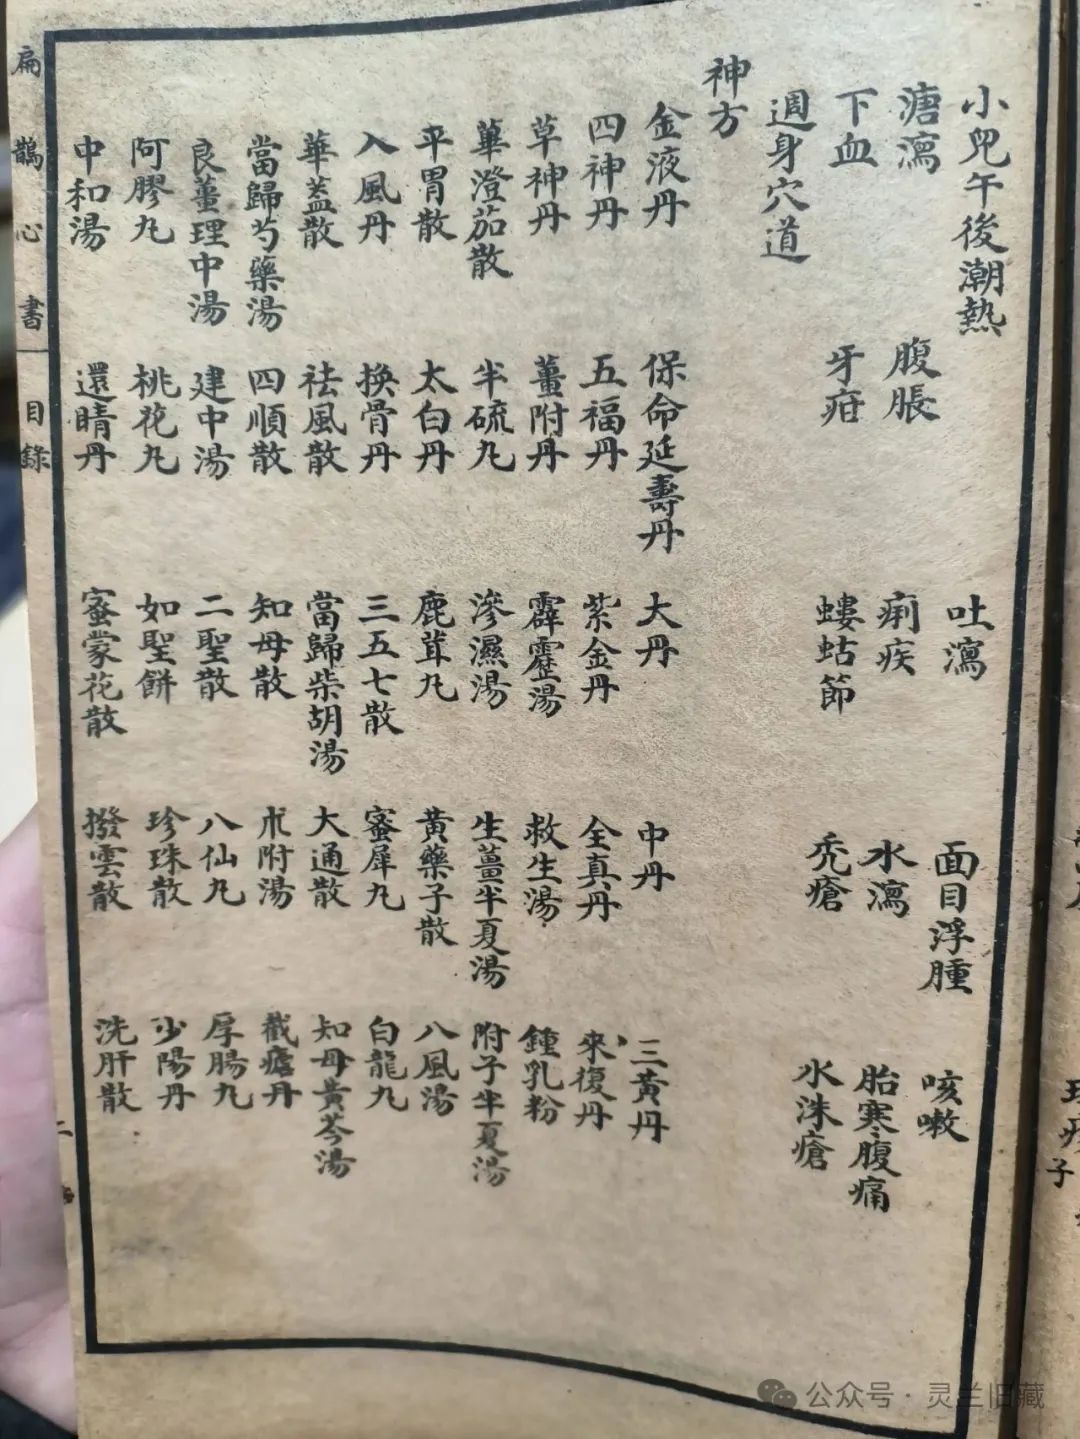 小兒午後潮熱 吐瀉 面目浮腫 咳嗽
溏瀉 腹脹 痢疾 水瀉 胎寒腹痛
下血 牙疳 螻蛄節 禿瘡 水洙瘡
週身穴道
神方
金液丹 保命延壽丹 大丹 中丹 三黃丹
四神丹 五福丹 紫金丹 全真丹 來復丹
草神丹 薑附丹 霹靂湯 救生湯 鍾乳粉
蓽澄茄散 半硫丸 滲濕湯 生薑半夏湯 附子半夏湯
平胃散 太白丹 鹿茸丸 黃藥子散 八風湯
入風丹 換骨丹 三五七散 蜜犀丸 白龍丸
華蓋散 祛風散 當歸柴胡湯 大通散 知母黃芩湯
當歸芍藥湯 四順散 知母散 朮附湯 截瘧丹
良薑理中湯 建中湯 二聖散 八仙丸 厚腸丸
阿膠丸 桃花丸 如聖餅 珍珠散 少陽丹
中和湯 還睛丹 蜜蒙花散 撥雲散 洗肝散
扁鵲心書 目錄 二
公众号·灵兰旧藏